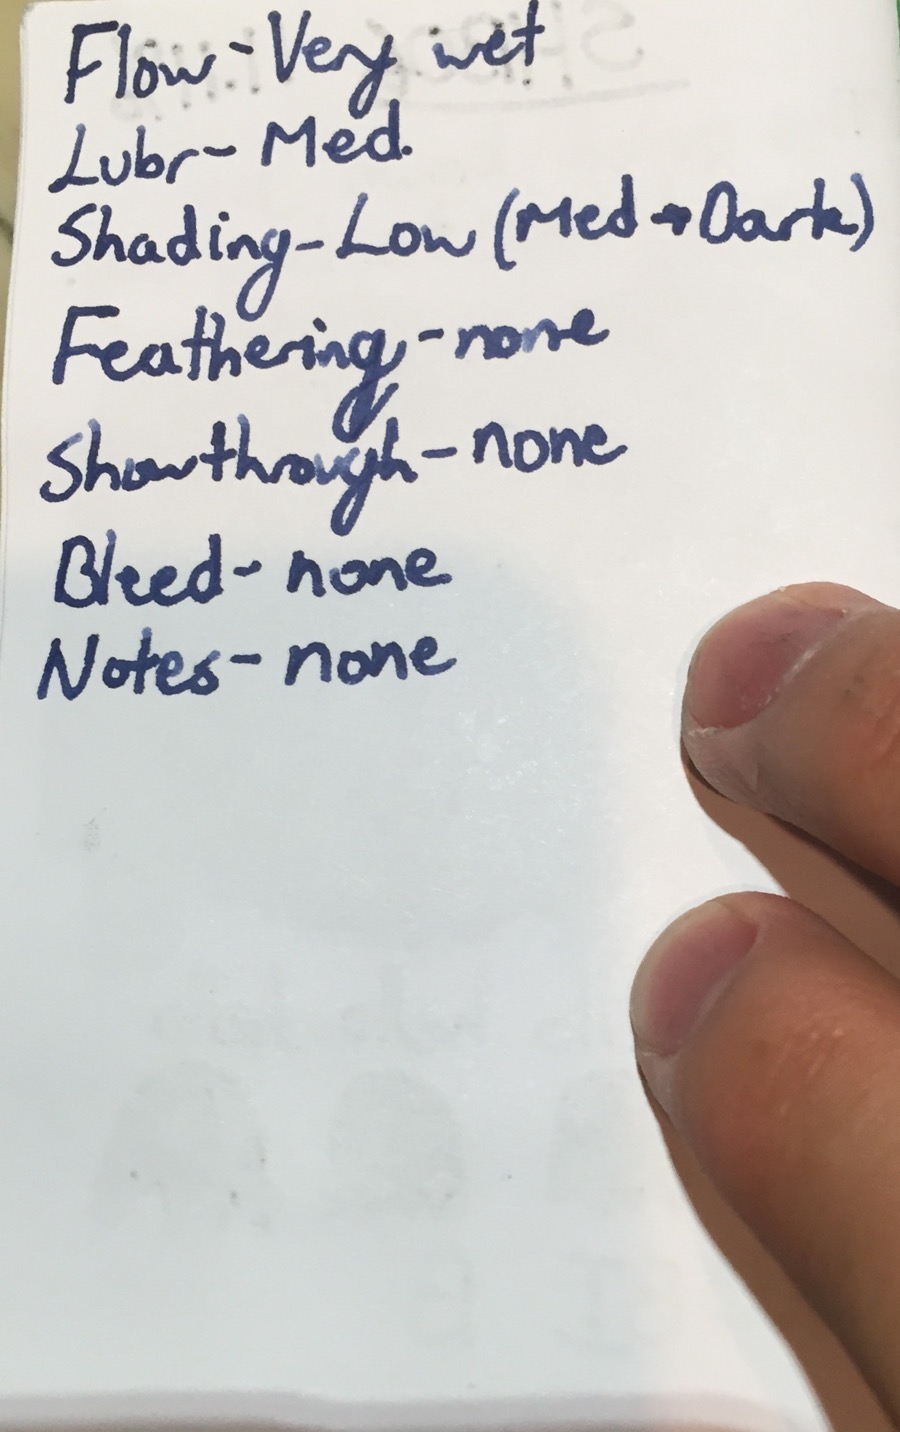 Flow - Very wet
Lubr - Med.
Shading - Low (Med → Dark)
Feathering - none
Showthrough - none
Bleed - none
Notes - none